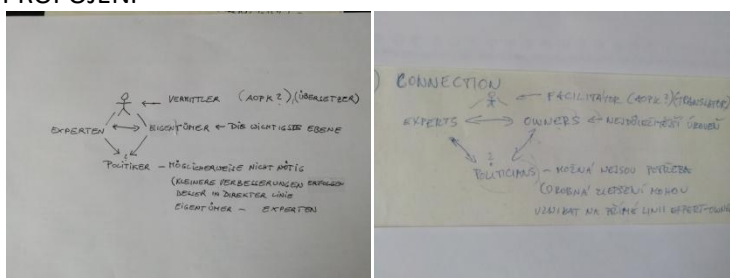 PROPOJENÍ
VERMITTLER (AOPK?),(ÜBERSETZER)
EXPERTEN EIGENTÜMER ← DIE WICHTIGSTE EBENE
?
POLITIKER – MÖGLICHERWEISE NICHT NÖTIG
(KLEINERE VERBESSERUNGEN ERFOLGEN
IN DIREKTER LINIE
EIGENTÜMER – EXPERTEN
) CONNECTION
FACILITÁTOR (AOPK?)(TRANSLATOR)
EXPERTS OWNERS ← NEJDŮLEŽITĚJŠÍ ÚROVEŇ
?
POLITICIANS – MOŽNÁ NEJSOU POTŘEBA
(DROBNÁ ZLEPŠENÍ MOHOU
VZNIKAT NA PŘÍMÉ LINII EXPERT-OWNE